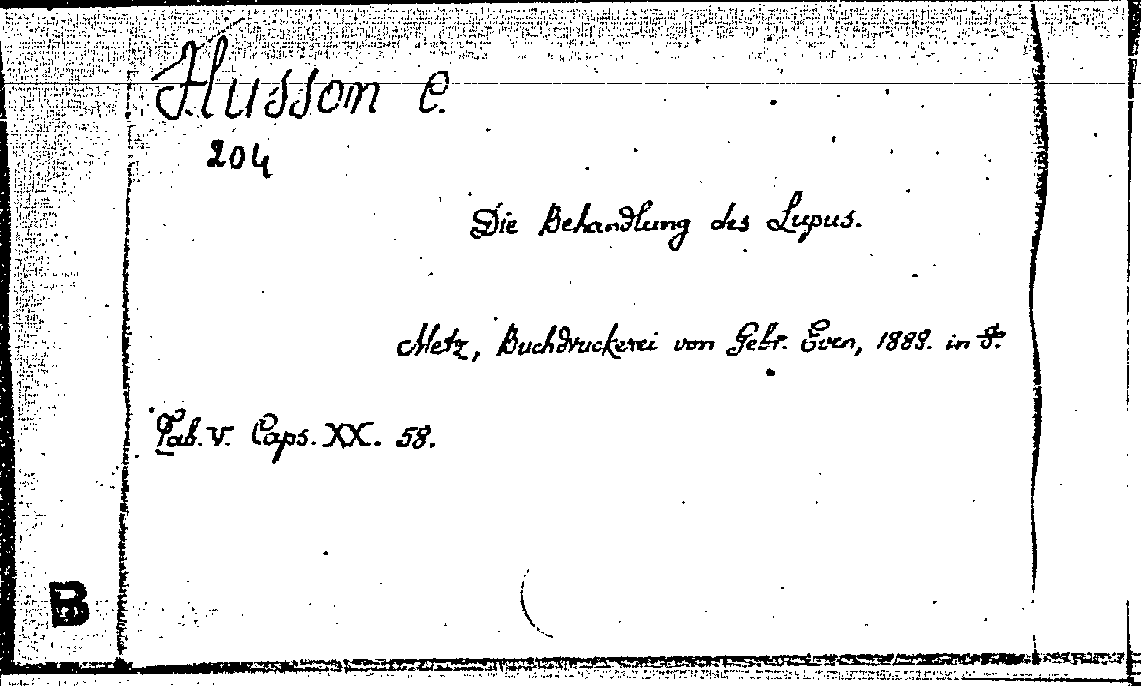 Husson C.
204
Die Behandlung des Lupus.
Metz, Buchdruckerei von Gebr. Even, 1889. in 8.
Tab. V. Caps. XX. 58.
B